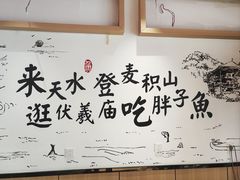 来天水登麦积山
逛伏羲庙吃胖子魚